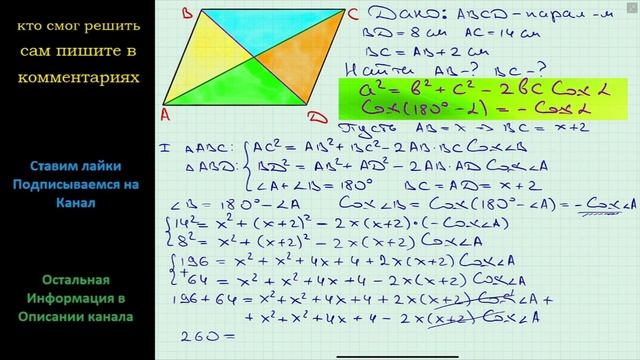 кто смог решить
сам пишите в
комментариях
Ставим лайки
Подписываемся на
Канал
Остальная
Информация в
Описании канала
B
C
A
D
Дано: ABCD - парал-м
BD = 8 см AC = 14 см
BC = AB + 2 см
Найти AB-? BC-?
a² = b² + c² - 2bc Cos α
Cos(180° - α) = - Cos α
Пусть AB = x → BC = x+2
I ΔABC: { AC² = AB² + BC² - 2AB·BC Cos∠B
ΔABD: BD² = AB² + AD² - 2AB·AD Cos∠A
∠A + ∠B = 180° BC = AD = x + 2
∠B = 180° - ∠A Cos∠B = Cos(180° - ∠A) = - Cos∠A
{ 14² = x² + (x+2)² - 2x(x+2)·(- Cos∠A)
8² = x² + (x+2)² - 2x(x+2) Cos∠A
{ 196 = x² + x² + 4x + 4 + 2x(x+2) Cos∠A
+ 64 = x² + x² + 4x + 4 - 2x(x+2) Cos∠A
196 + 64 = x² + x² + 4x + 4 + 2x(x+2) Cos∠A +
+ x² + x² + 4x + 4 - 2x(x+2) Cos∠A
260 =